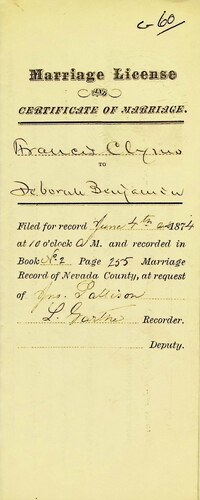 c-60
Marriage License
CERTIFICATE OF MARRIAGE.
Francis Clymo
TO
Deborah Benjamin
Filed for record June 4th 1874
at 10 o'clock A M. and recorded in
Book No 2 Page 255 Marriage
Record of Nevada County, at request
of Jno. Pattison
L. Garthe Recorder.
Deputy.